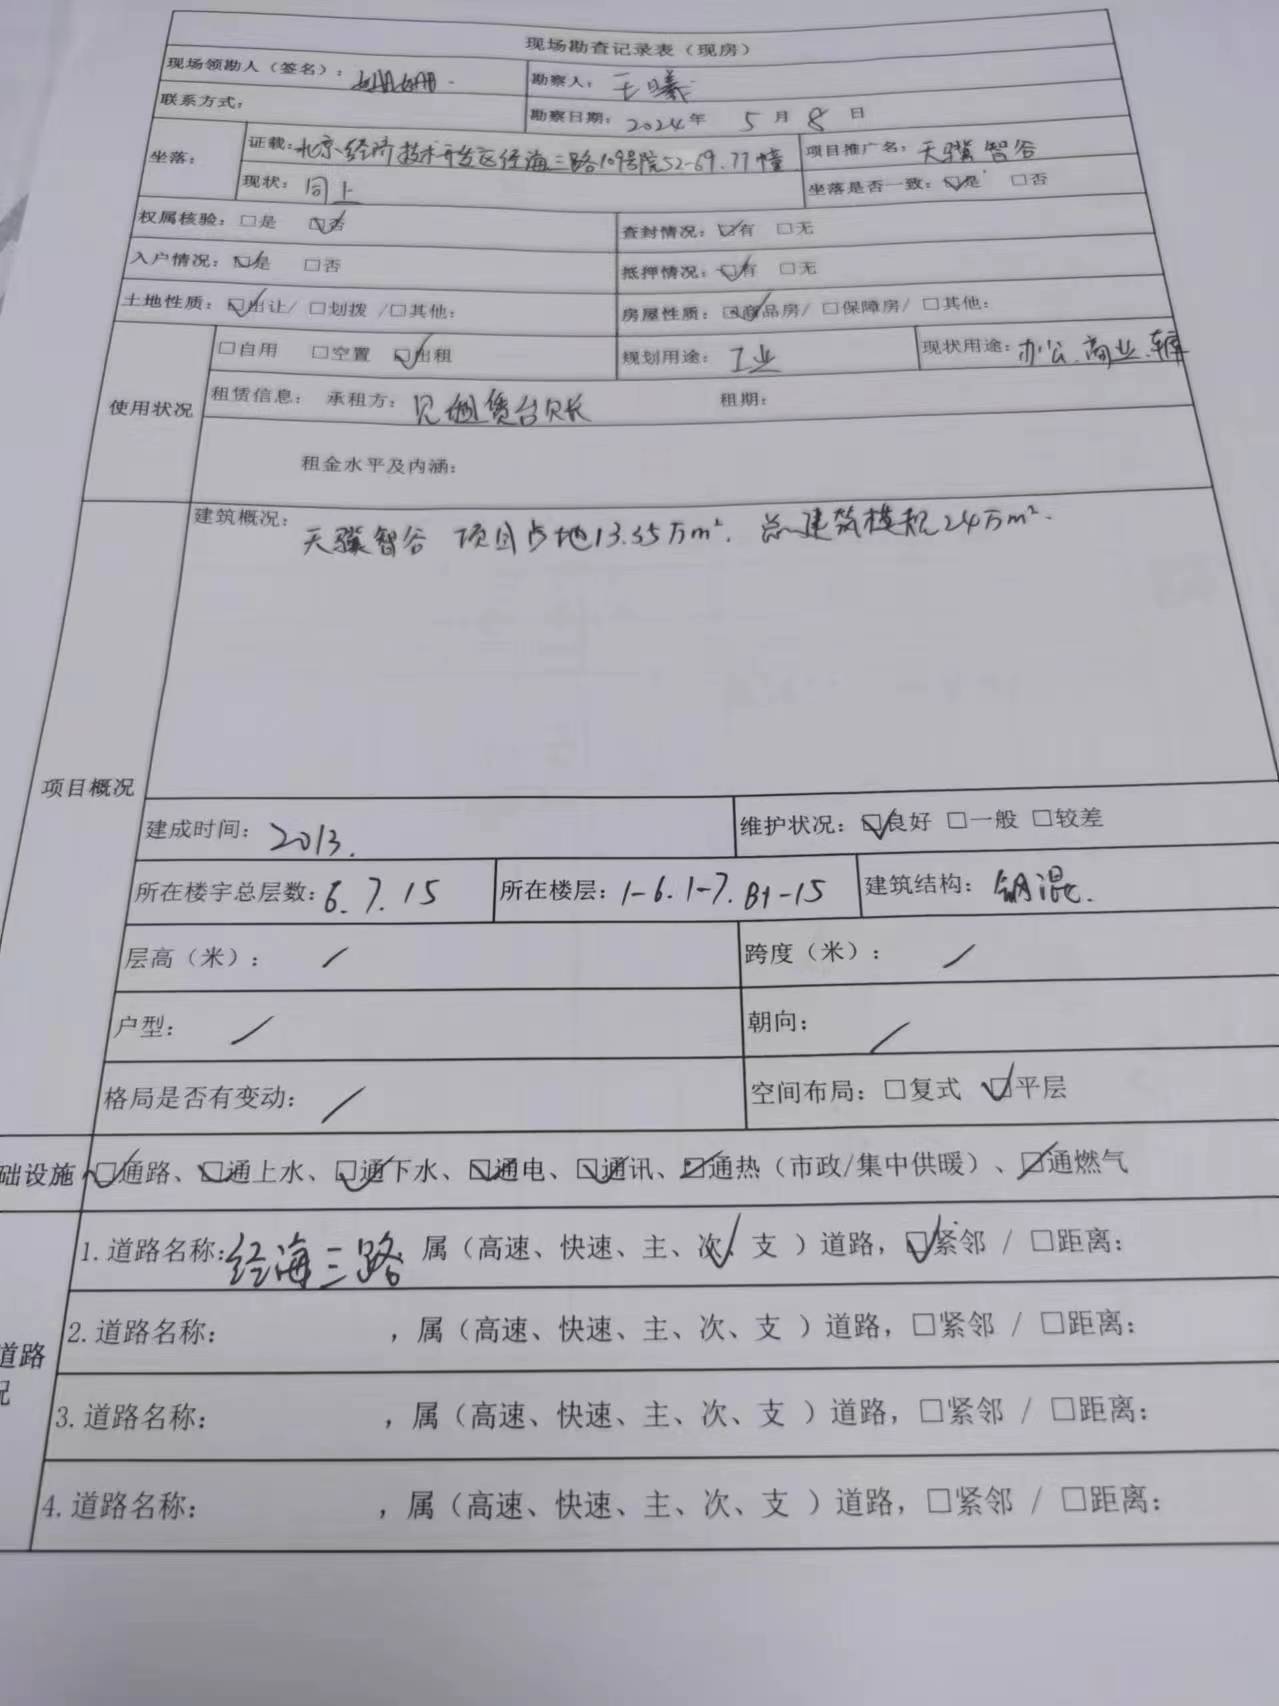 现场勘查记录表（现房）
现场领勘人（签名）： 勘察人： 王曦
联系方式： 勘察日期： 2024年 5月8日
坐落： 证载：北京经济技术开发区经海三路109号院52-69.77幢 项目推广名： 天骥智谷
现状： 同上 坐落是否一致：☑是 □否
权属核验：□是 ☑否 查封情况：☑有 □无
入户情况：☑是 □否 抵押情况：☑有 □无
土地性质：☑出让/ □划拨 /□其他： 房屋性质：☑商品房/ □保障房/ □其他：
使用状况 □自用 □空置 ☑出租 规划用途： 工业 现状用途： 办公.商业.车库
租赁信息： 承租方： 见租赁台账 租期：
租金水平及内涵：
项目概况 建筑概况： 天骥智谷 项目占地13.35万m². 总建筑规模24万m².
建成时间： 2013. 维护状况：☑良好 □一般 □较差
所在楼宇总层数：6.7.15 所在楼层：1-6.1-7.B1-15 建筑结构： 钢混.
层高（米）： / 跨度（米）： /
户型： / 朝向： /
格局是否有变动： / 空间布局：□复式 ☑平层
础设施 ☑通路、☑通上水、☑通下水、☑通电、☑通讯、☑通热（市政/集中供暖）、☑通燃气
道路
况
1.道路名称：经海三路 属（高速、快速、主、次√、支 ）道路，☑紧邻 / □距离：
2.道路名称： ，属（高速、快速、主、次、支 ）道路，□紧邻 / □距离：
3.道路名称： ，属（高速、快速、主、次、支 ）道路，□紧邻 / □距离：
4.道路名称： ，属（高速、快速、主、次、支 ）道路，□紧邻 / □距离：